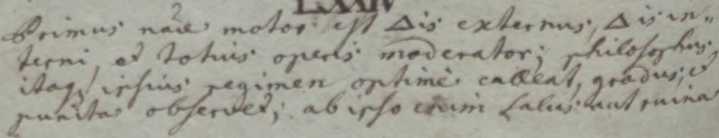 LXXIV
Primus naē motor est Δis externus, Δis in„
terni et totius operis moderator; philosophus
itaq; ipsius regimen optimè calleat, gradus, et
puncta observet; ab ipso enim salus aut ruina